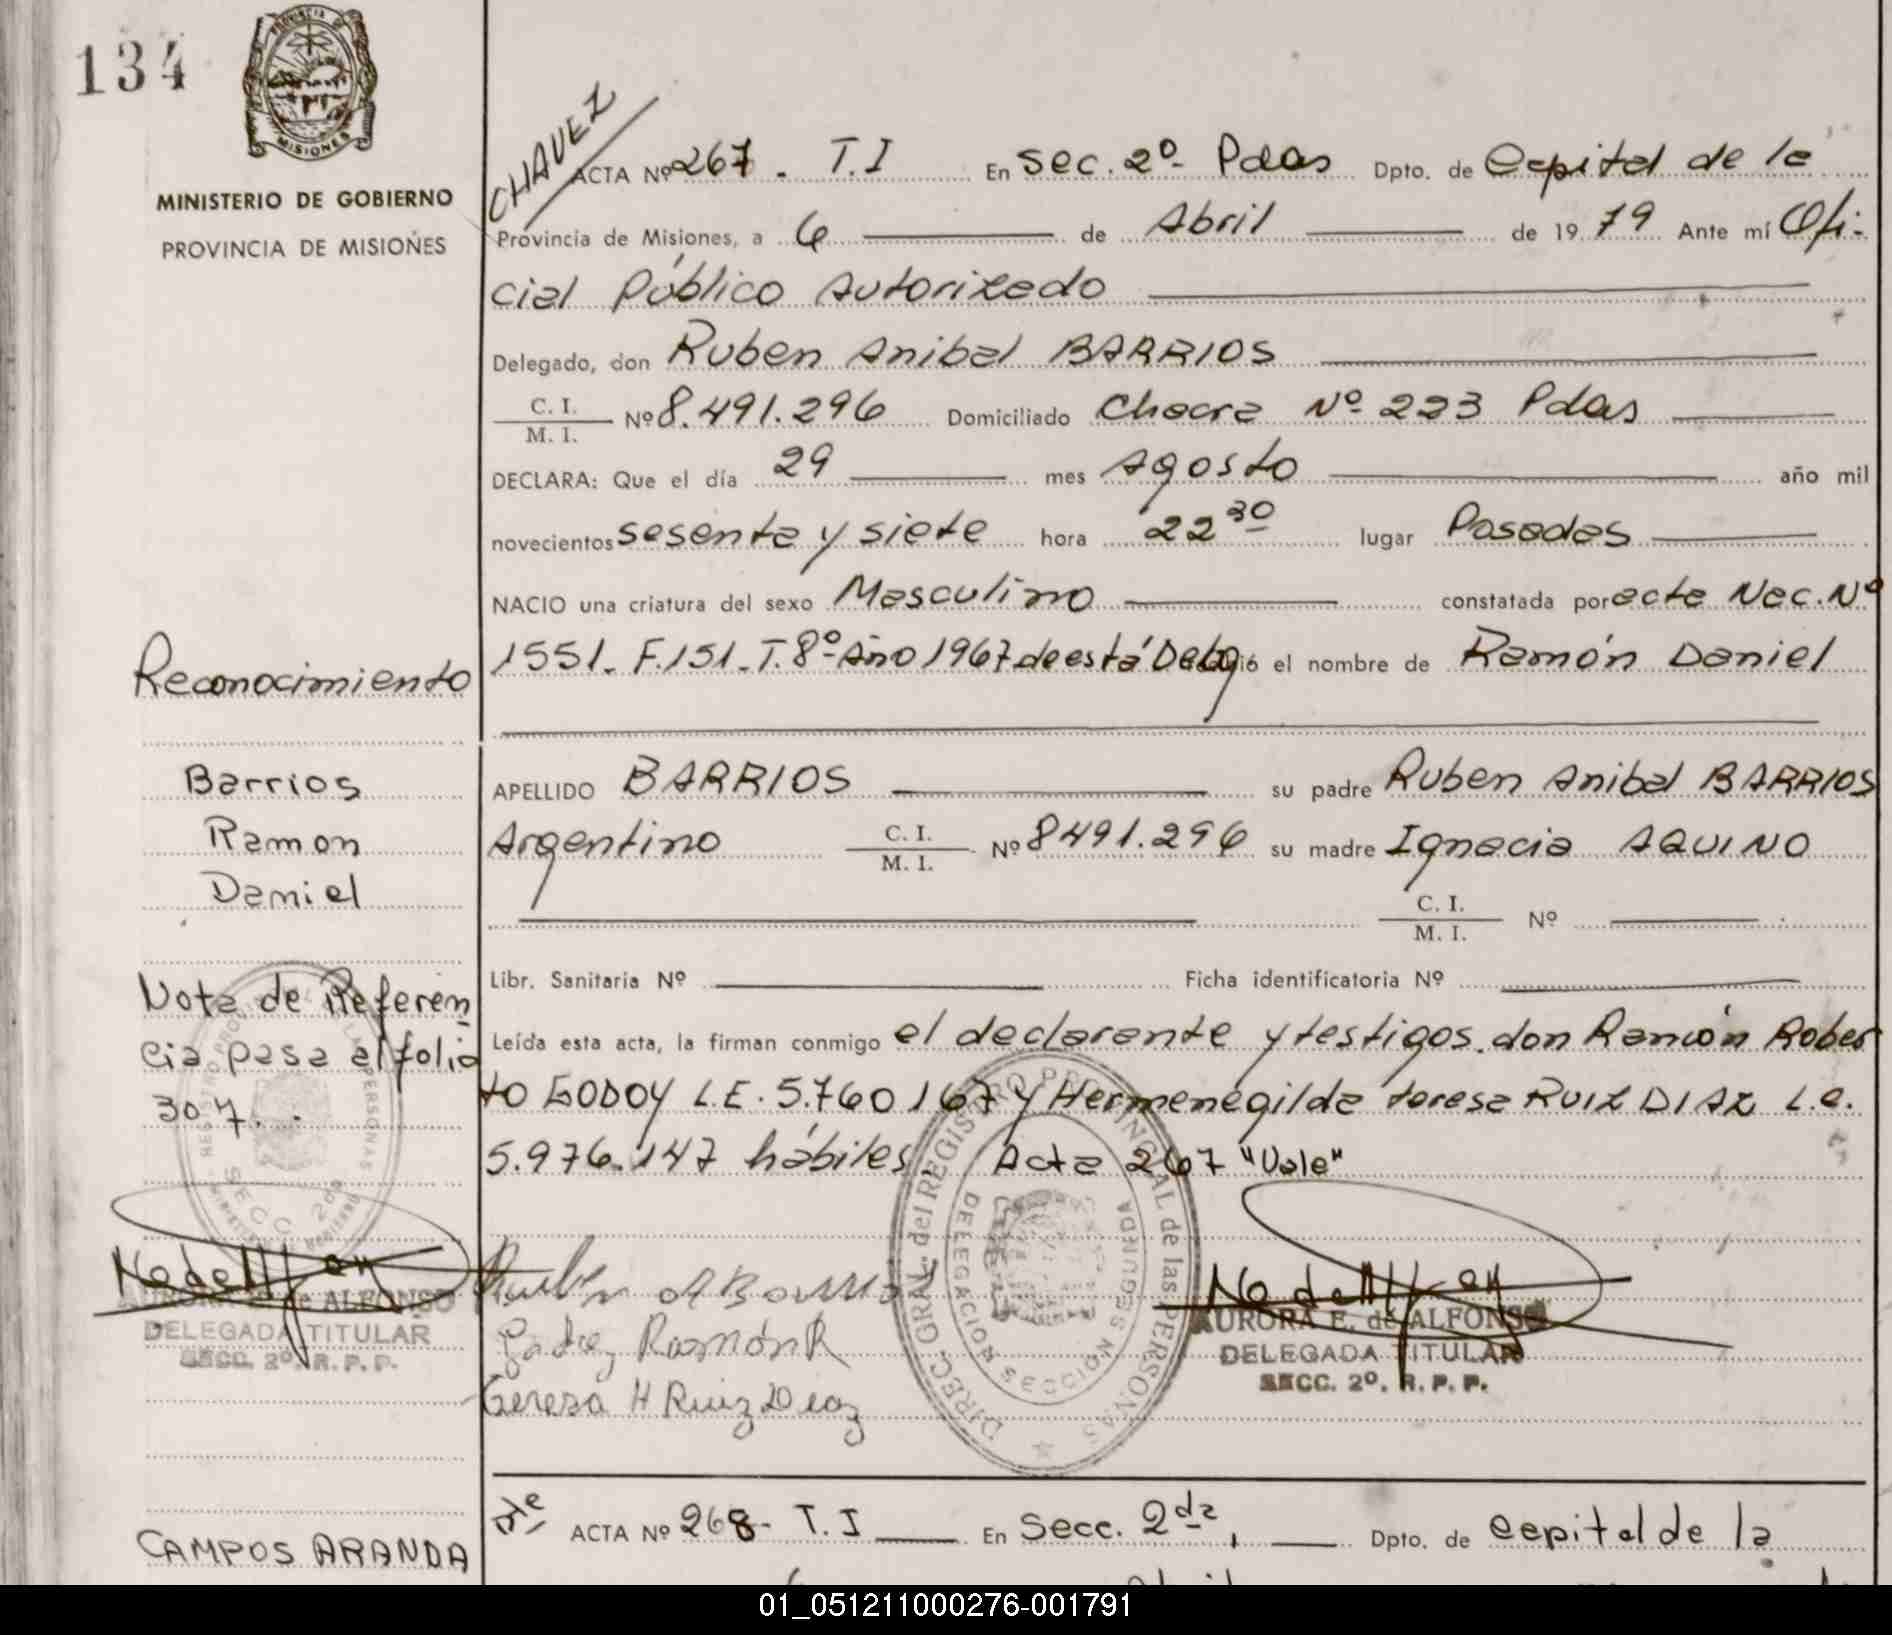 134
PROVINCIA DE
MISIONES
MINISTERIO DE GOBIERNO
PROVINCIA DE MISIONES
CHAVEZ
ACTA Nº 267 . T.I En Sec. 2º Pdas Dpto. de Capital de la
Provincia de Misiones, a 6 de Abril de 1979 Ante mí Ofi-
cial Público Autorizado
Delegado, don Ruben Anibal BARRIOS
C. I.
M. I. Nº 8.491.296 Domiciliado Chacra Nº 223 Pdas
DECLARA: Que el día 29 mes Agosto año mil
novecientos sesenta y siete hora 22 30 lugar Posadas
NACIO una criatura del sexo Masculino constatada por acta Nac. Nº
1551. F.151. T.8º Año 1967 de está Deleg ió el nombre de Ramón Daniel
Reconocimiento
Barrios
Ramon
Daniel
APELLIDO BARRIOS su padre Ruben Anibal BARRIOS
Argentino C. I.
M. I. Nº 8491.296 su madre Ignacia AQUINO
C. I.
M. I. Nº
Libr. Sanitaria Nº Ficha identificatoria Nº
Nota de Referen
cia pasa al folio
307.
Leída esta acta, la firman conmigo el declarante y testigos. don Ramón Rober
to GODOY L.E. 5.760167 y Hermenegilda teresa RUIZ DIAZ L.e.
5.976.147 hábiles. Acta 267 "Vale"
DIREC. GRAL. del REGISTRO PROVINCIAL de las PERSONAS
DELEGACION SECCION SEGUNDA
AURORA E. de ALFONSO
DELEGADA TITULAR
SECC. 2º. R. P. P.
Ramón R
Teresa H Ruiz Diaz
AURORA E. de ALFONSO
DELEGADA TITULAR
SECC. 2º. R. P. P.
ACTA Nº 268- T.I En Secc. 2da, Dpto. de Capital de la
CAMPOS ARANDA
01_051211000276-001791